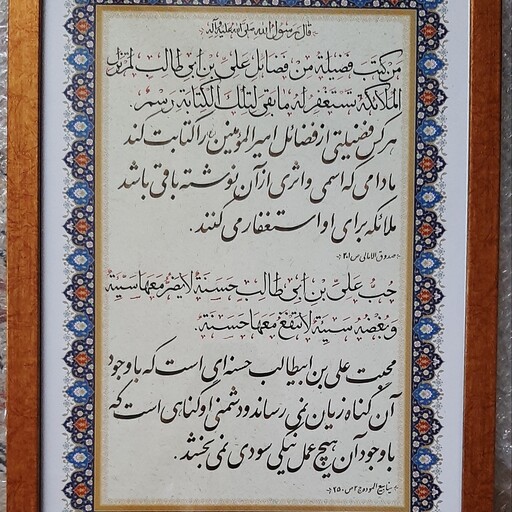 قال رسول الله صلی الله علیه و آله
مَن کتب فضیلة من فضائل علی بن ابی طالب لم تزل
الملائکة تستغفر له ما بقی لتلک الکتابة رسم.
هر کس فضیلتی از فضائل امیرالمؤمنین را کتابت کند
مادامی که اسمی و اثری از آن نوشته باقی باشد
ملائکه برای او استغفار می کنند.
صدوق الامالی ص ۲۰۱
حُبّ علی بن ابی طالب حسنة لا یضر معها سیئة
و بغضه سیئة لا تنفع معها حسنة.
محبت علی بن ابیطالب حسنه ای است که با وجود
آن گناه زیان نمی رساند و دشمنی او گناهی است که
با وجود آن هیچ عمل نیکی سودی نمی بخشد.
ینابیع المودة ج ۲ ص ۲۵۰